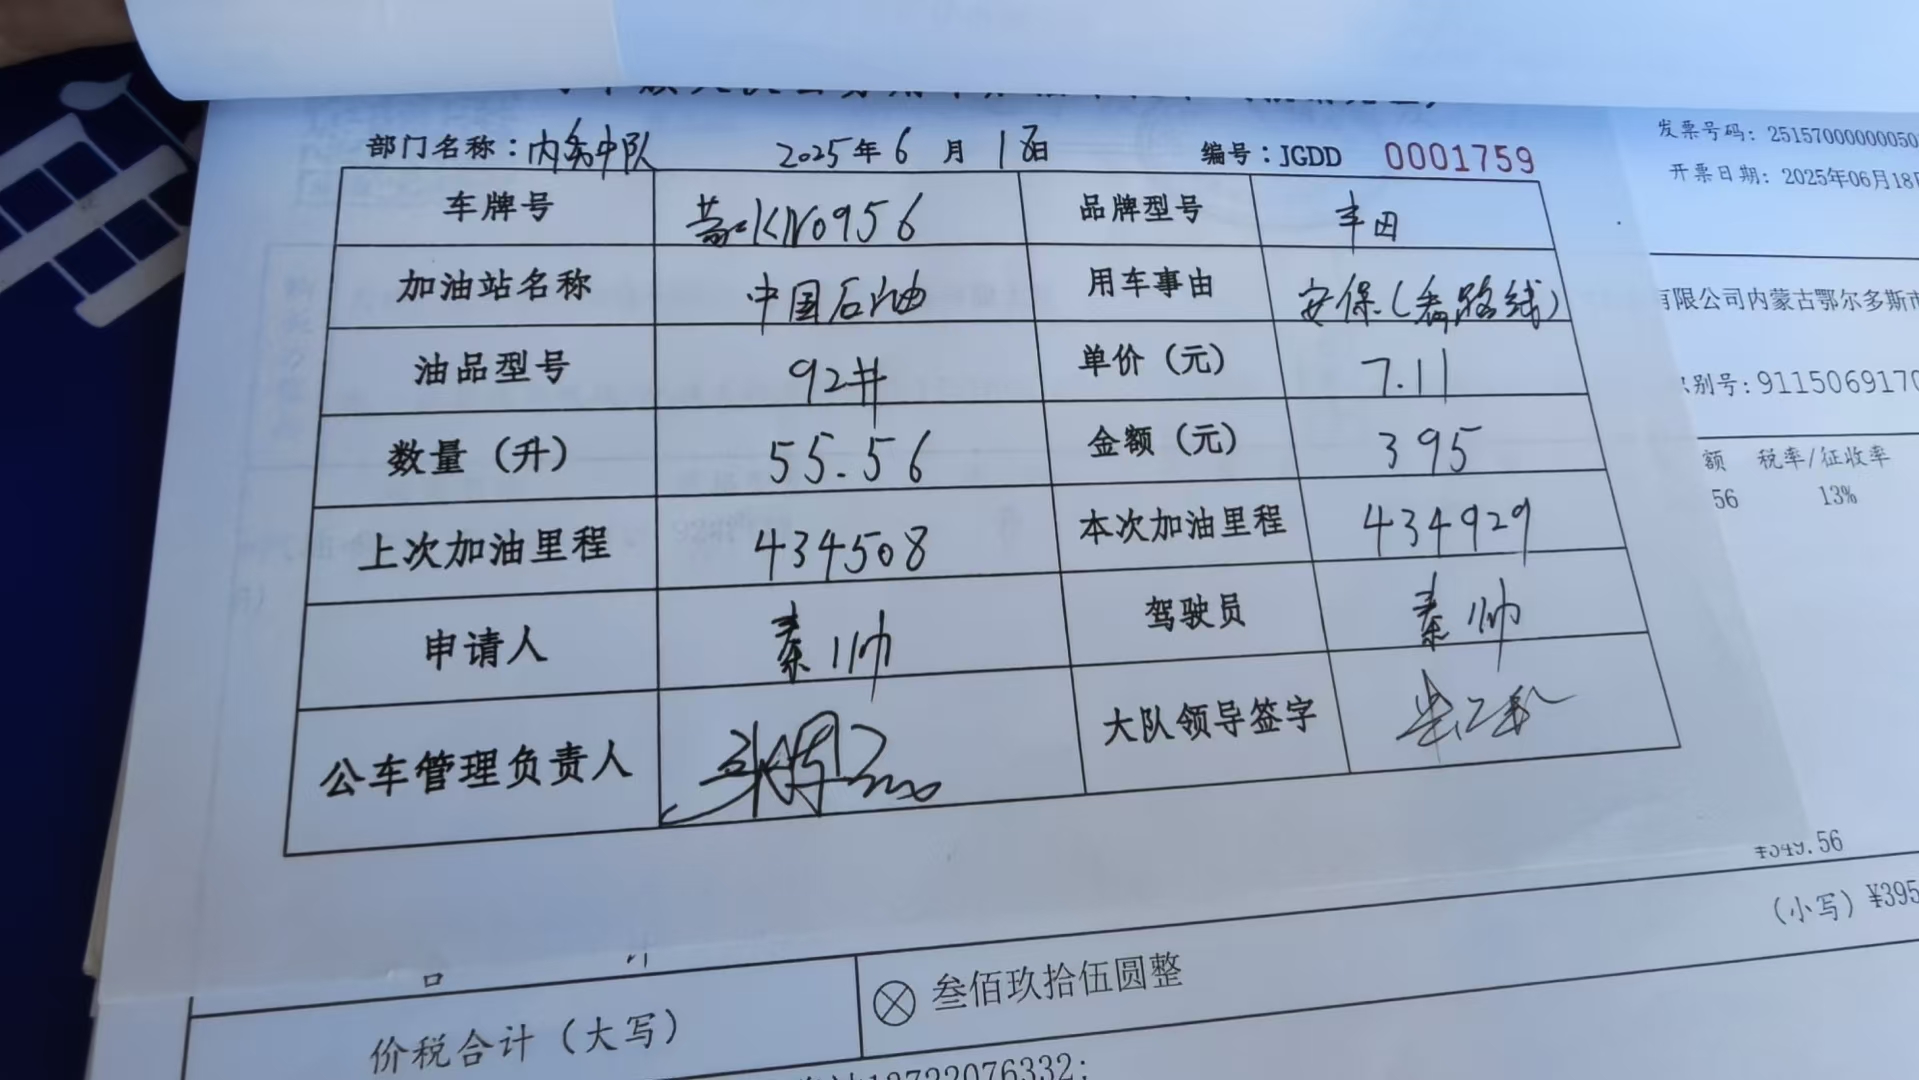 部门名称：内务中队 2025年6月18日 编号：JGDD 0001759
车牌号 蒙KN0956 品牌型号 丰田
加油站名称 中国石油 用车事由 安保(看路线)
油品型号 92# 单价（元） 7.11
数量（升） 55.56 金额（元） 395
上次加油里程 434508 本次加油里程 434929
申请人 秦帅 驾驶员 秦帅
公车管理负责人 大队领导签字
发票号码：2515700000050
开票日期：2025年06月18日
有限公司内蒙古鄂尔多斯市
识别号：9115069170
额 税率/征收率
56 13%
¥349.56
（小写）¥395
合 计
价税合计（大写） 叁佰玖拾伍圆整
13722076332;